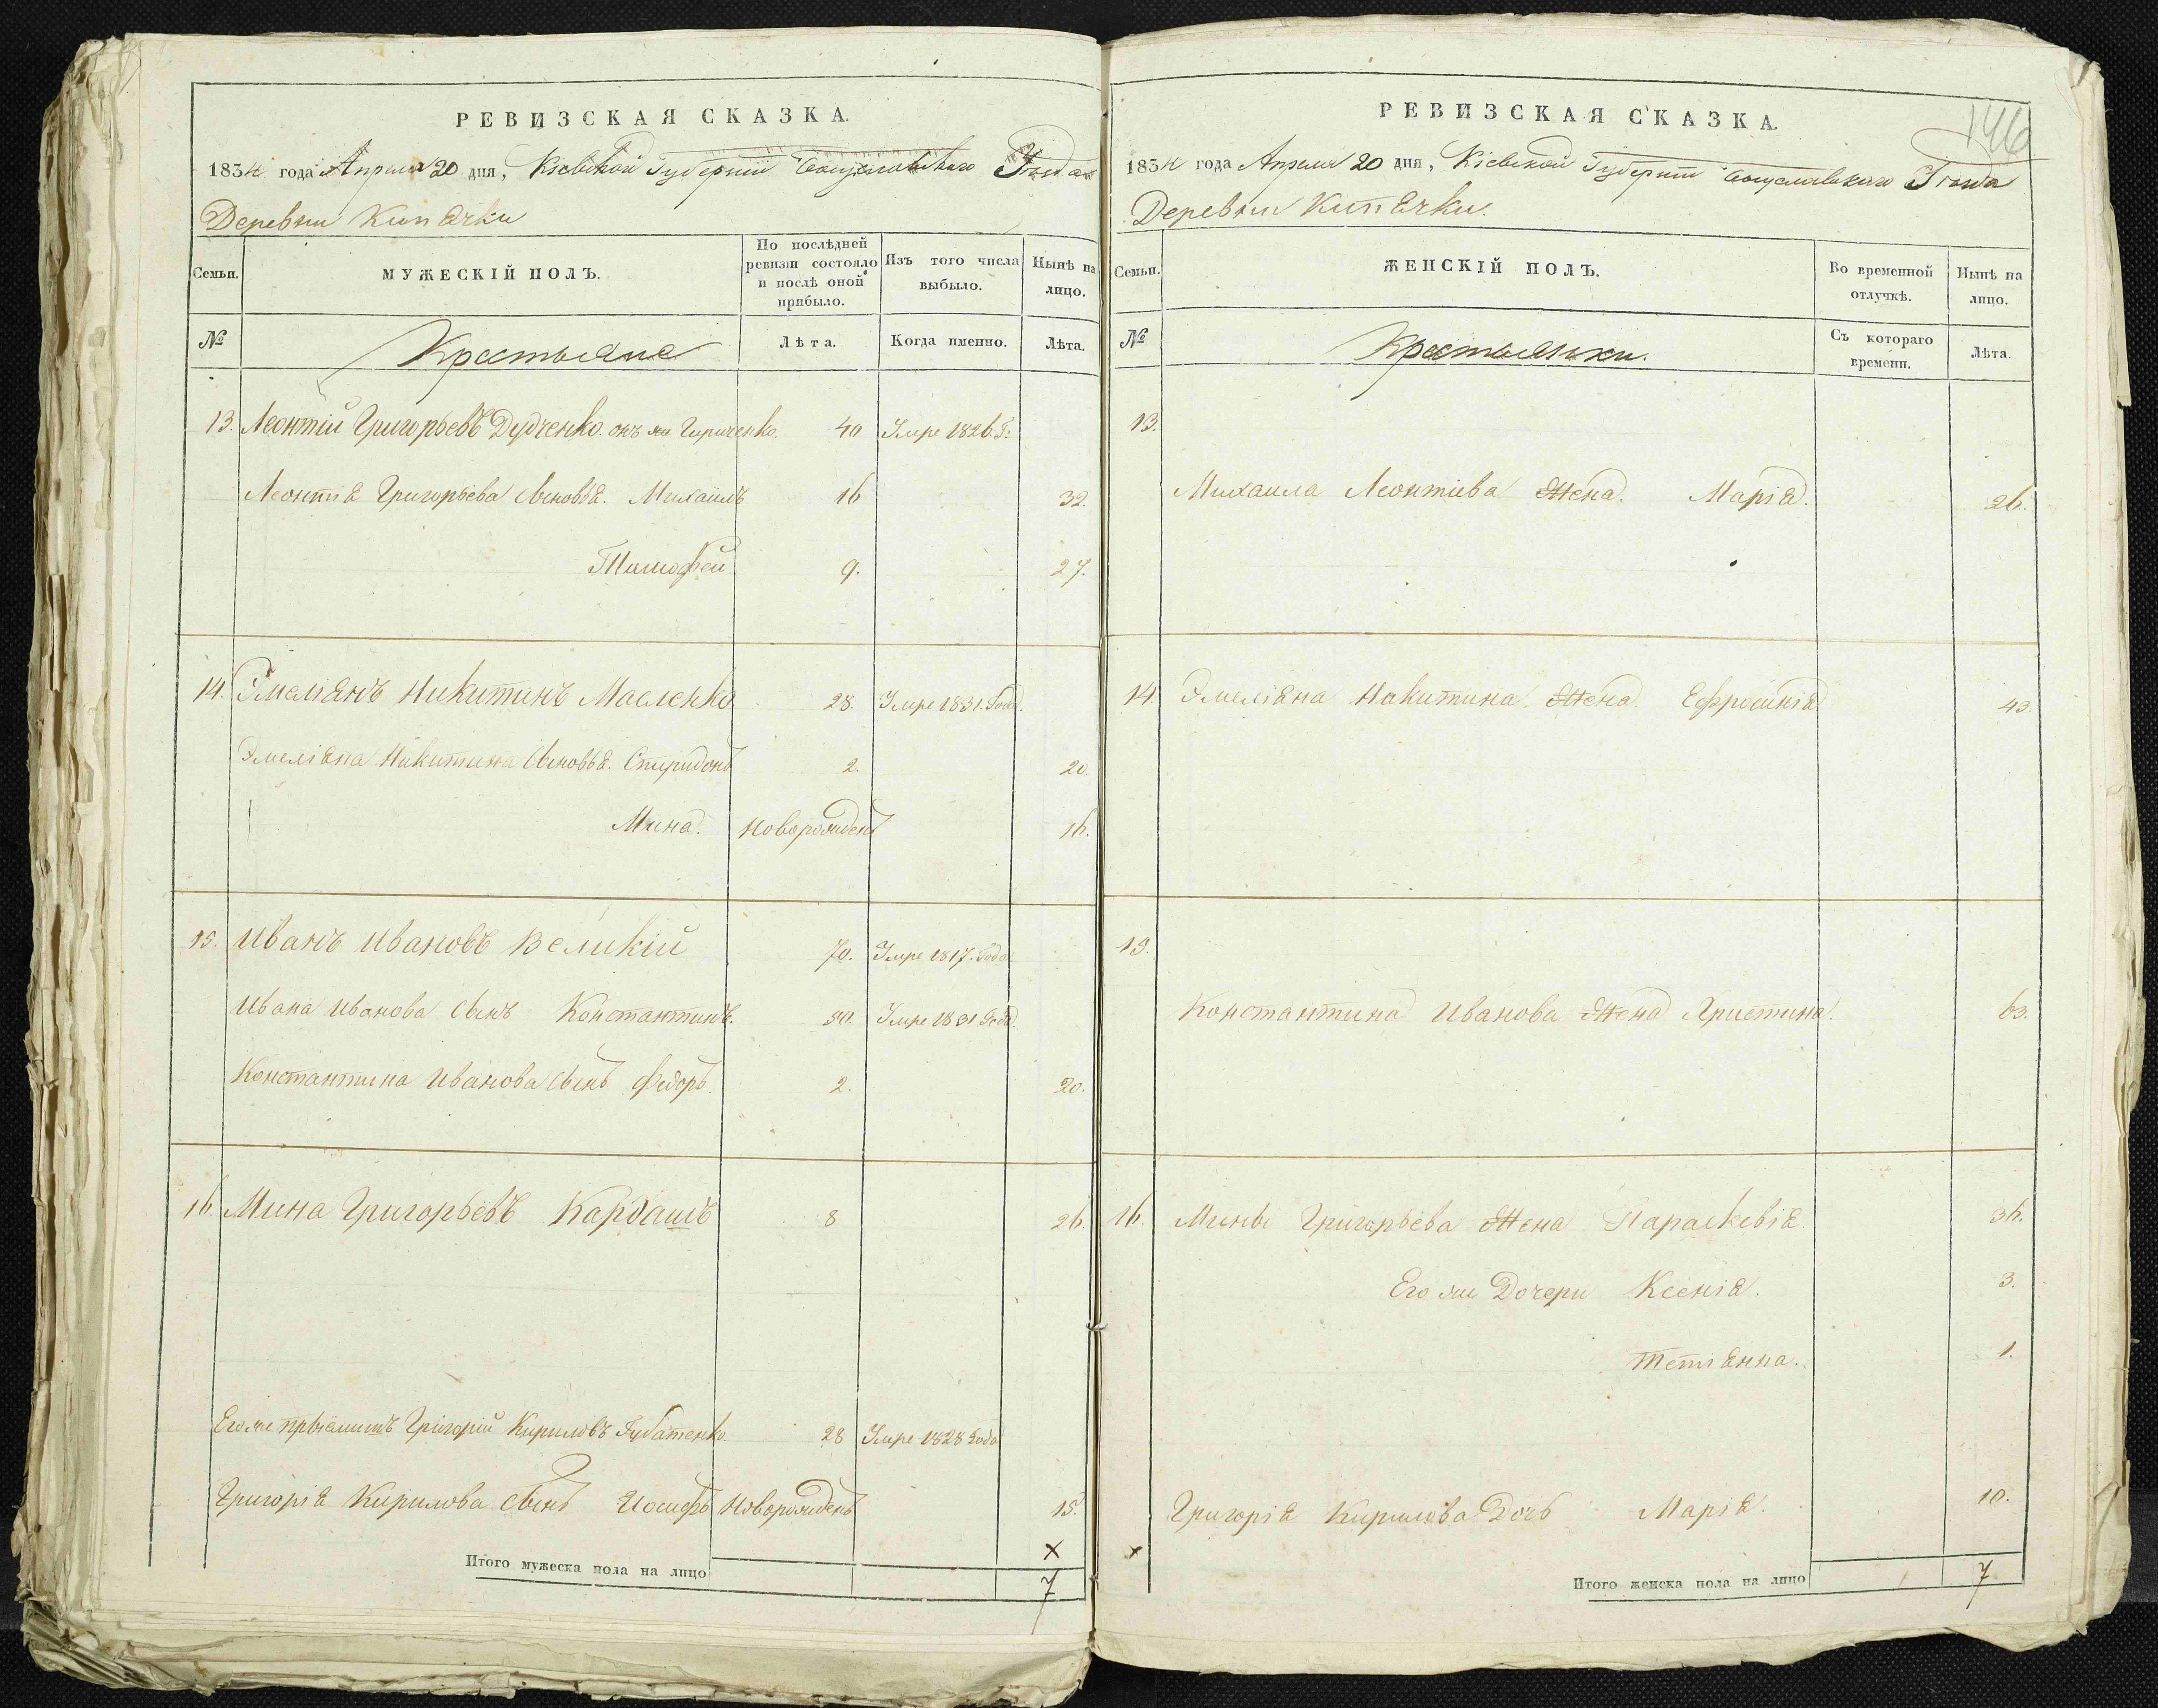 РЕВИЗСКАЯ СКАЗКА.
1834 года Апреля 20 дня, Кіевской Губерніи Богуславскаго Уѣзда
Деревни Кипячки
Семьи.
МУЖЕСКІЙ ПОЛЪ.
По послѣдней ревизіи состояло и послѣ оной прибыло.
Изъ того числа выбыло.
Нынѣ на лицо.
№
Крестьяне
Лѣта.
Когда именно.
Лѣта.
13. Леонтій Григорьевъ Дудченко. онъ же Гириченко. 40 Умре 1826. Г:
Леонтія Григорьева Сыновья. Михаилъ 16 32.
Тимофей 9. 27.
14. Эмеліянъ Никитинъ Масленко 28. Умре 1831. Года.
Эмеліяна Никитина Сыновья. Спиридонъ 2. 20.
Мина. Новорожденъ 16.
15. Иванъ Ивановъ Великій 70. Умре 1817. Года
Ивана Иванова Сынъ Константинъ. 50. Умре 1831 Года.
Константина Иванова Сынъ Федоръ. 2. 20.
16. Мина Григорьевъ Кардашъ 8 26.
Его же пріемышъ Григорій Кириловъ Губатенко. 28 Умре 1828 Года
Григорія Кирилова Сынъ Иосифъ Новорожденъ 15.
х
Итого мужеска пола на лицо 7
РЕВИЗСКАЯ СКАЗКА.
146
1834 года Апреля 20 дня, Кіевской Губерніи Богуславскаго Уѣзда
Деревни Кипячки.
Семьи.
ЖЕНСКІЙ ПОЛЪ.
Во временной отлучкѣ.
Нынѣ на лицо.
№
Крестьянки.
Съ котораго времени.
Лѣта.
13.
Михаила Леонтіева Жена. Марія. 26.
14. Эмеліяна Никитина Жена Ефросинія 43.
15.
Константина Иванова Жена Христина. 63.
16. Мины Григорьева Жена Параскевія. 36.
Его же Дочери Ксенія. 3.
Тетіянна. 1.
Григорія Кирилова Дочь Марія. 10.
х
Итого женска пола на лицо 7